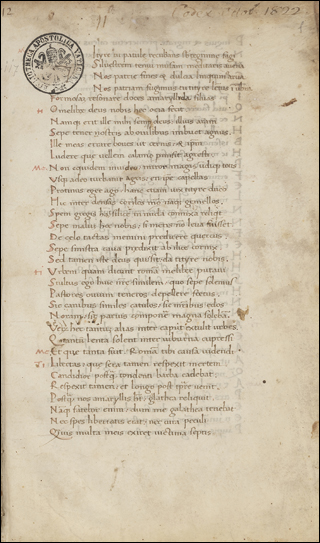 12
ityre tu patule recubans sub tegmine fagi
Siluestrem tenui musam meditaris auena
Nos patrie fines & dulcia linquimus arua
Nos patriam fugimus tu tityre lentus in umbra
Formosam resonare doces amaryllida siluas
O melibee deus nobis hec otia fecit
Namq; erit ille mihi semp deus; illius aram
Sepe tener nostris ab ouilibus imbuet agnus
Ille meas errare boues ut cernis & ipsum
Ludere que uellem calamo pmisit agresti
Non equidem inuideo miror magis; undiq; totis
Usq; adeo turbatur agris; en ipse capellas
Protinus eger ago; hanc etiam uix tityre duco
Hic inter densas corilos mo namq; gemellos
Spem gregis silice in nuda conixa reliquit
Sepe malum hoc nobis; si mens non leua fuisset
De celo tactas memini predicere quercus
Sepe sinistra caua predixit ab ilice cornix
Sed tamen iste deus qui sit da tityre nobis
Urbem quam dicunt romam melibee putaui
Stultus ego huic nre similem; quo sepe solemus
Pastores ouium teneros depellere fetus
Sic canibus similes catulos; sic matribus edos
Noram; sic paruis componere magna solebam
Veru hec tantu alias inter caput extulit urbes
Quantu lenta solent inter uiburna cupressi
Et que tanta fuit Roma tibi causa uidendi
Libertas; que sera tamen respexit inertem
Candidior postq; tondenti barba cadebat
Respexit tamen; & longo post tpre uenit
Postq; nos amaryllis h&; galathea reliquit
Naq; fatebor enim; dum me galathea tenebat
Nec spes libertatis erat; nec cura peculi
Quis multa meis exiret uictima septis.